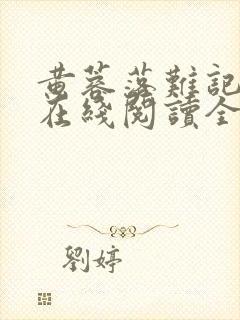 黄蓉落難記
在綫閲讀全
劉婷